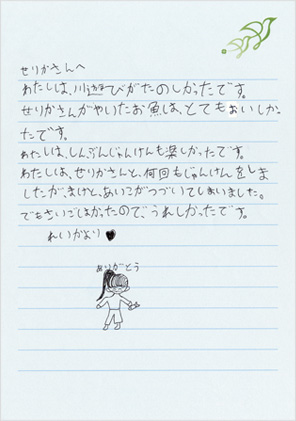 せりかさんへ
わたしは、川遊びがたのしかったです。
せりかさんがやいたお魚は、とてもおいしかっ
たです。
わたしは、しんぶんじゃんけんも楽しかったです。
わたしは、せりかさんと、何回もじゃんけんをしま
したが、まけと、あいこがつづいてしまいました。
でもさいごはかったので、うれしかったです。
れいかより♥
ありがとう